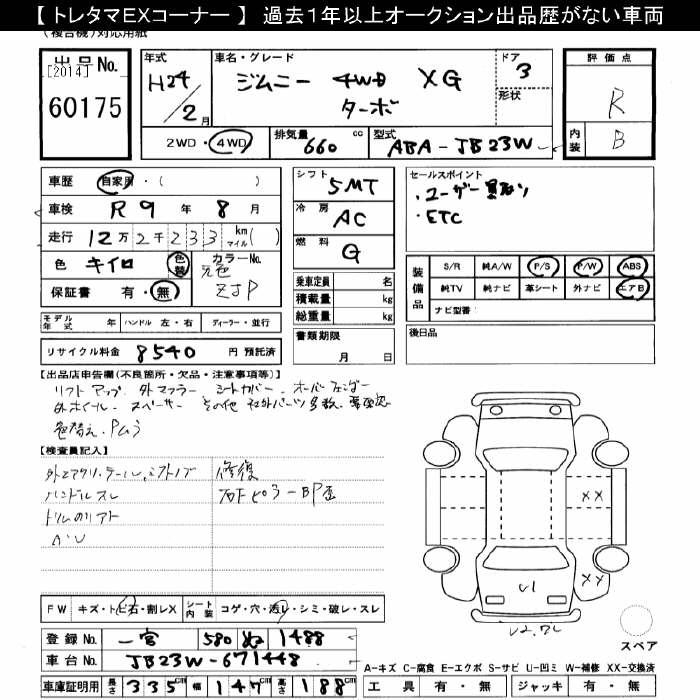 【トレタマEXコーナー】 過去1年以上オークション出品歴がない車両
(複合機)対応用紙
出品No.
[2014]
60175
年式 H24/2月
車名・グレード ジムニー 4WD XG
ターボ
ドア 3
形状
2WD・4WD 排気量 660 cc 型式 ABA-JB23W
評価点
R
内装 B
車歴 自家用・( )
車検 R9年 8月
走行 12万2千233 km マイル( )
色 キイロ 色替 カラーNo. 元色 ZJP
保証書 有・無
シフト 5MT
冷房 AC
燃料 G
乗車定員 名
積載量 kg
総重量 kg
書類期限
月 日
セールスポイント
・ユーザー買取り
・ETC
装備品 S/R 純A/W P/S P/W ABS
純TV 純ナビ 革シート 外ナビ エアB
ナビ型番:
後日品
モデル年式 年 ハンドル 左・右 ディーラー・並行
リサイクル料金 8540 円 預託済
【出品店申告欄(不良箇所・欠品・注意事項等)】
リフトアップ 外マフラー シートカバー オーバーフェンダー
外ホイール スペーサー その他 社外パーツ多数 要確認
色替え、Pムラ
【検査員記入】
ハンドルスレ
修復
FW キズ・トビ石・割レX シート内装 コゲ・穴・汚レ・シミ・破レ・スレ
登録No. 一宮 580 ぬ 1488
車台No. JB23W-671448
車庫証明用 長さ 335cm 幅 147cm 高さ 188cm
XX
XX
U1
U2.
スペア
A-キズ C-腐食 E-エクボ S-サビ U-凹ミ W-補修 XX-交換済
工具 有・無 ジャッキ 有・無